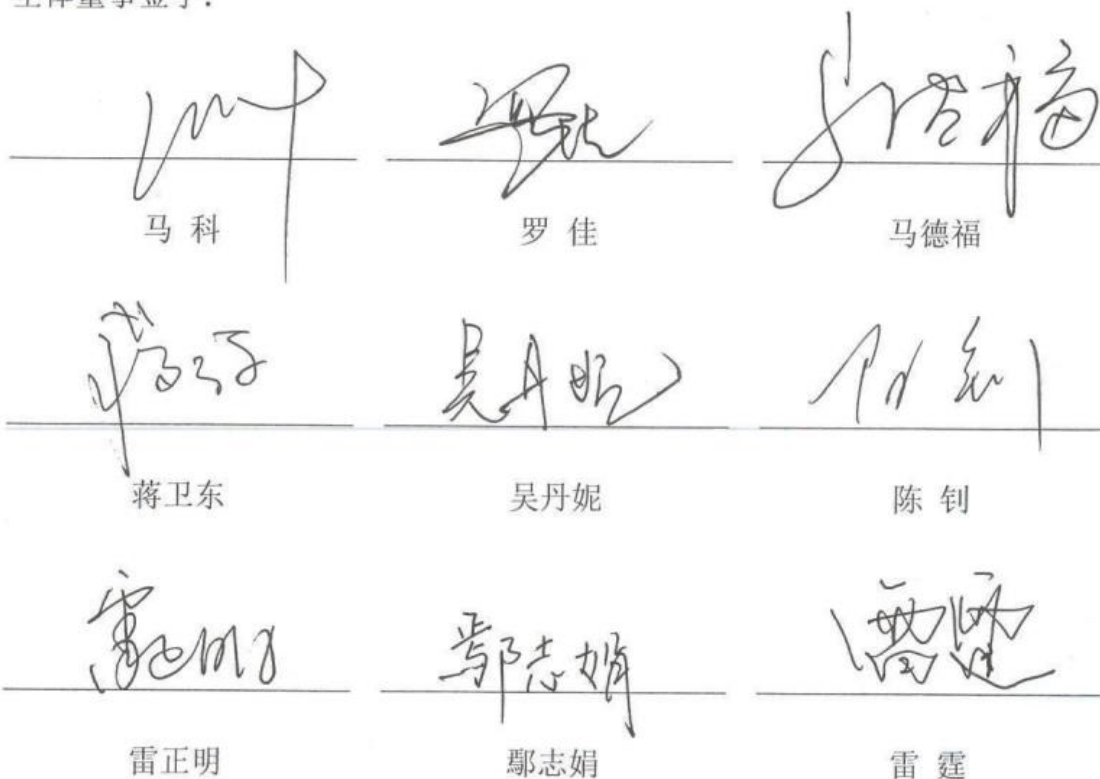 全体董事签字：
马 科 罗 佳 马德福
蒋卫东 吴丹妮 陈 钊
雷正明 鄢志娟 雷 霆